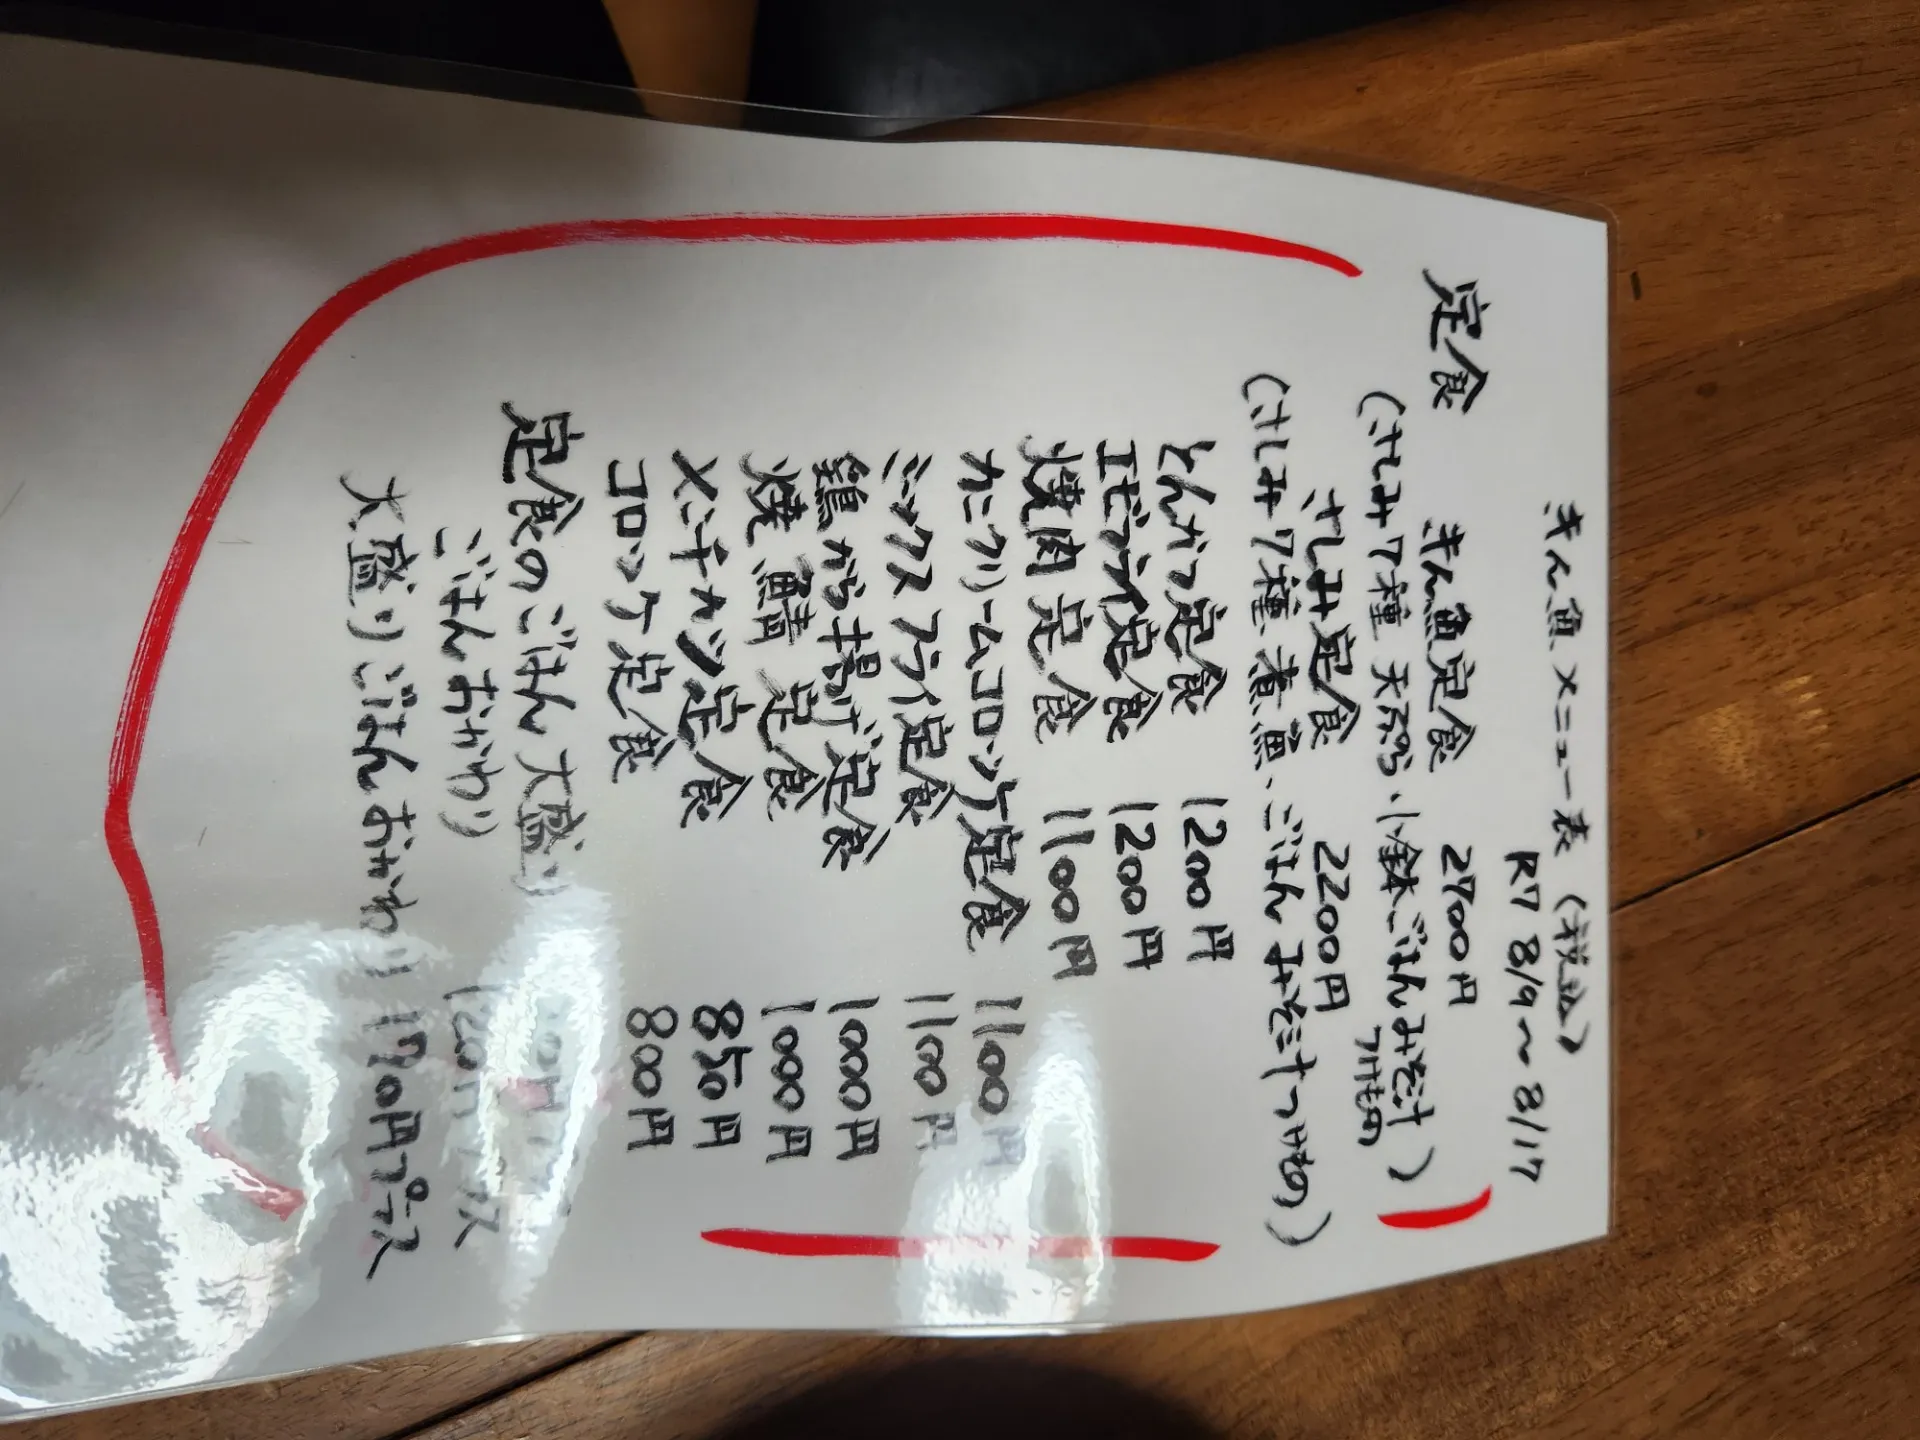 きん魚メニュー表(税込)
R7 8/9〜8/17
定食
きん魚定食 2700円
(さしみ7種 天ぷら、小鉢ごはんみそ汁)
つけもの
さしみ定食 2200円
(さしみ7種、煮魚、ごはん みそ汁つけもの)
とんかつ定食 1200円
エビフライ定食 1200円
焼肉定食 1100円
カニクリームコロッケ定食 1100円
ミックスフライ定食 1100円
鶏から揚げ定食 1000円
焼鯖定食 1000円
メンチカツ定食 850円
コロッケ定食 800円
定食のごはん大盛り
ごはんおかわり 120円
大盛りごはんおかわり 190円プラス